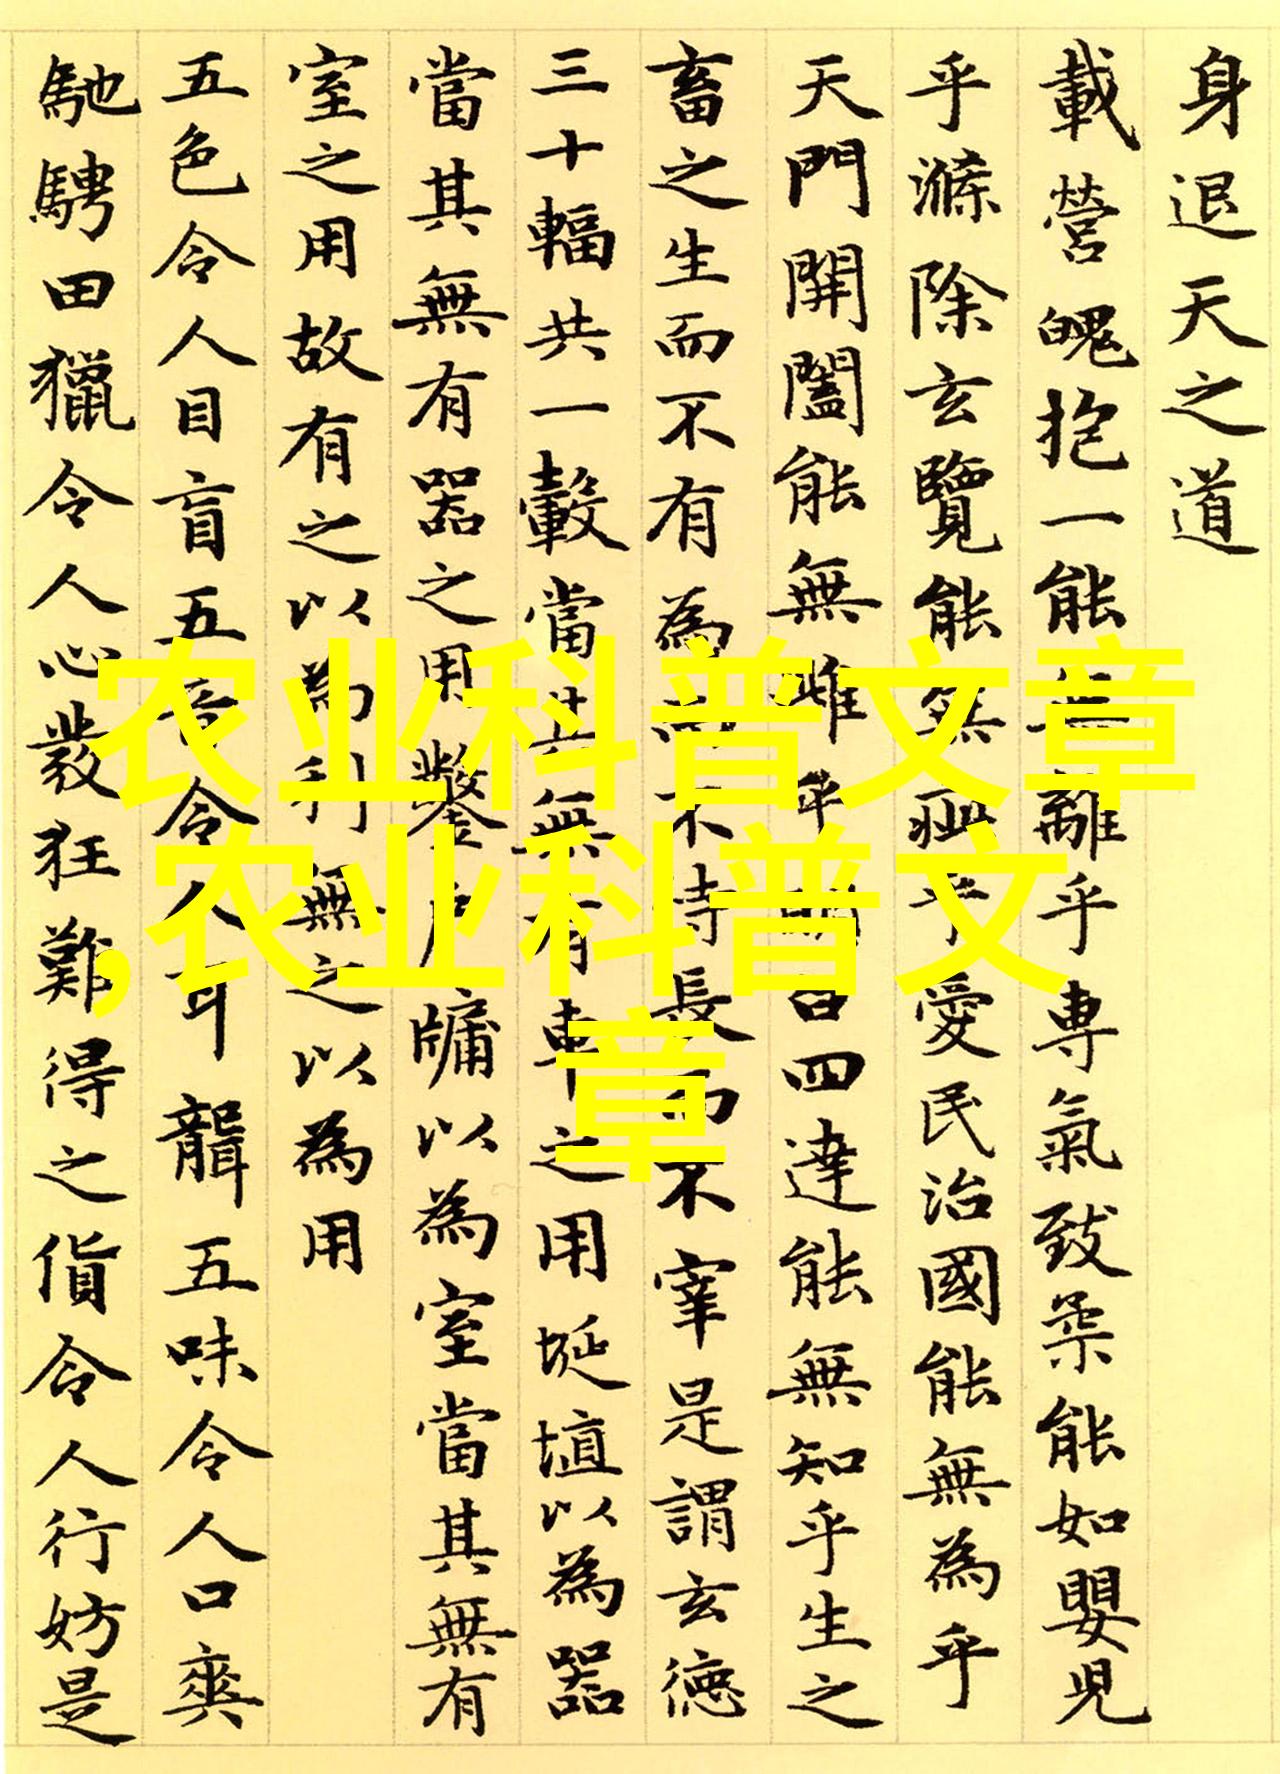 身退天之道
載營魄抱一能無離乎專氣致柔能如嬰児
乎滌除玄覽能無疵乎愛民治國能無為乎
天門開闔能無雌乎明白四達能無知乎生之
畜之生而不有為而不恃長而不宰是謂玄德
三十輻共一轂當其無有車之用埏埴以為器
當其無有器之用鑿戶牖以為室當其無有
室之用故有之以為利無之以為用
五色令人目盲五音令人耳聾五味令人口爽
馳騁田獵令人心發狂難得之貨令人行妨是
农业科普文章
,农业科普文
章